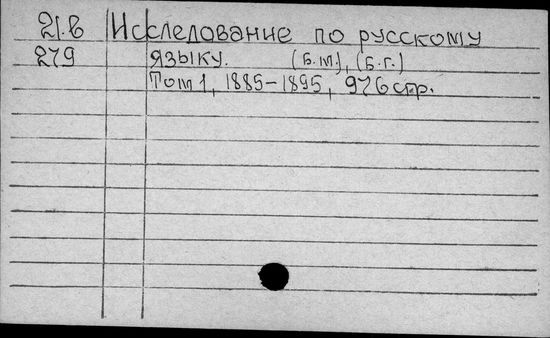 21.в Исследование по русскому
279 языку. (Б.м.), (Б.г.)
Том 1, 1885-1895, 976 стр.